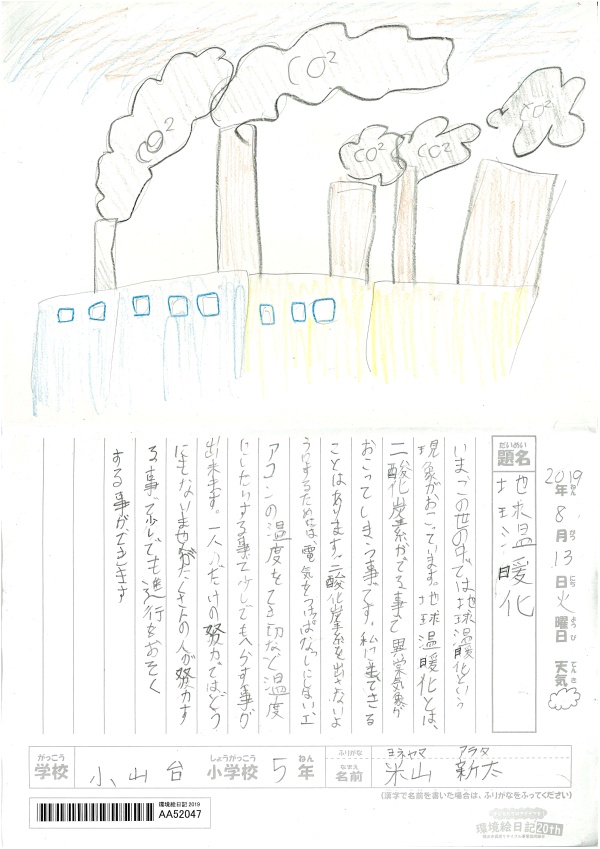 CO2
CO2
CO2
CO2
CO2
2019年8月13日火曜日 天気
ねん
がつ
にち
ようび
てんき
だいめい
題名
地球温暖化
いまこの世の中では地球温暖化という
現象がおこっています。地球温暖化とは、
二酸化炭素がでる事で異常気象が
おこってしまう事です。私に出来できる
ことはあります。二酸化炭素を出さないよ
うにするためには、電気をつけっぱなしにしない、エ
アコンの温度をてき切な温度
にしたりする事で少しでもへらす事が
出来ます。一人だけの努力ではどう
にもならいませんがたくさんの人が努力す
る事で少しでも進行をおそく
する事ができます
がっこう
学校
小山台
しょうがっこう
小学校
5
ねん
年
ふりがな
ヨネヤマ アラタ
なまえ
名前
米山 新太
(漢字で名前を書いた場合は、ふりがなをふってください)
環境絵日記 2019
AA52047
環境絵日記 20th